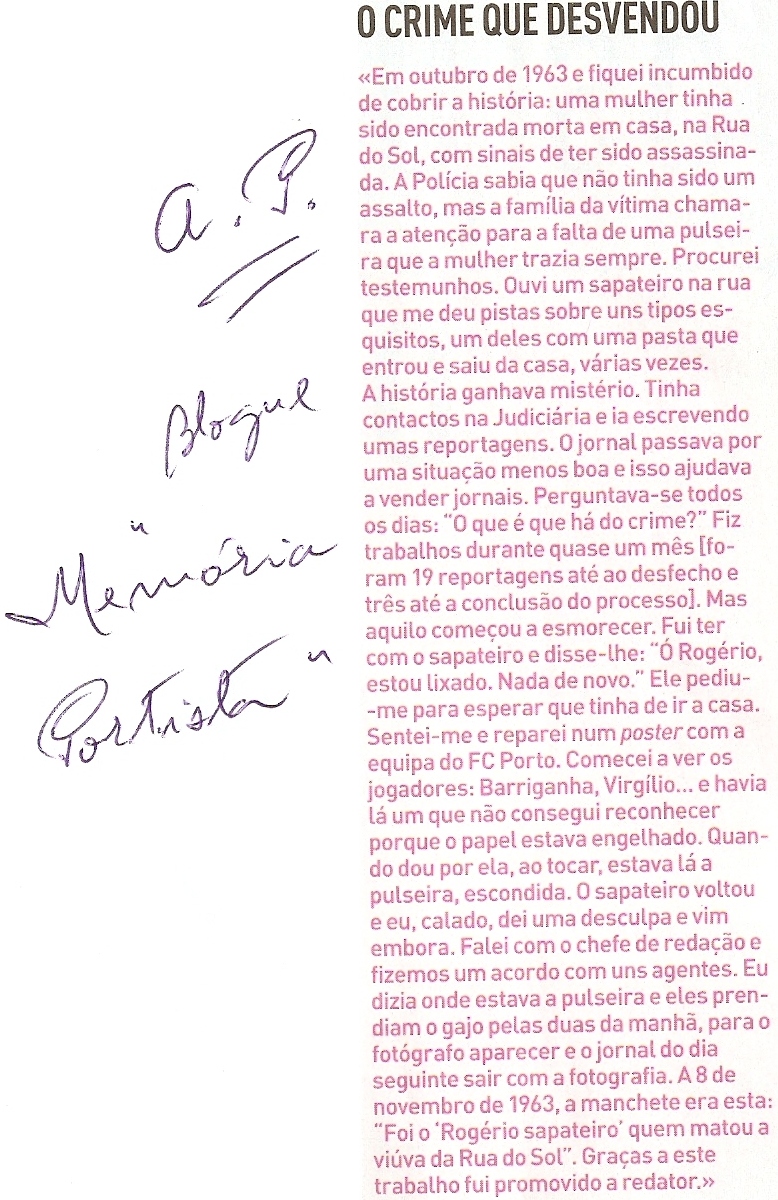 O CRIME QUE DESVENDOU
«Em outubro de 1963 e fiquei incumbido
de cobrir a história: uma mulher tinha
sido encontrada morta em casa, na Rua
do Sol, com sinais de ter sido assassina-
da. A Polícia sabia que não tinha sido um
assalto, mas a família da vítima chama-
ra a atenção para a falta de uma pulsei-
ra que a mulher trazia sempre. Procurei
testemunhos. Ouvi um sapateiro na rua
que me deu pistas sobre uns tipos es-
quisitos, um deles com uma pasta que
entrou e saiu da casa, várias vezes.
A história ganhava mistério. Tinha
contactos na Judiciária e ia escrevendo
umas reportagens. O jornal passava por
uma situação menos boa e isso ajudava
a vender jornais. Perguntava-se todos
os dias: “O que é que há do crime?” Fiz
trabalhos durante quase um mês [fo-
ram 19 reportagens até ao desfecho e
três até a conclusão do processo]. Mas
aquilo começou a esmorecer. Fui ter
com o sapateiro e disse-lhe: “Ó Rogério,
estou lixado. Nada de novo.” Ele pediu-
-me para esperar que tinha de ir a casa.
Sentei-me e reparei num poster com a
equipa do FC Porto. Comecei a ver os
jogadores: Barriganha, Virgílio... e havia
lá um que não consegui reconhecer
porque o papel estava engelhado. Quan-
do dou por ela, ao tocar, estava lá a
pulseira, escondida. O sapateiro voltou
e eu, calado, dei uma desculpa e vim
embora. Falei com o chefe de redação e
fizemos um acordo com uns agentes. Eu
dizia onde estava a pulseira e eles pren-
diam o gajo pelas duas da manhã, para o
fotógrafo aparecer e o jornal do dia
seguinte sair com a fotografia. A 8 de
novembro de 1963, a manchete era esta:
“Foi o ‘Rogério sapateiro’ quem matou a
viúva da Rua do Sol”. Graças a este
trabalho fui promovido a redator.»
A. P.
Blogue
"Memória
Portista"